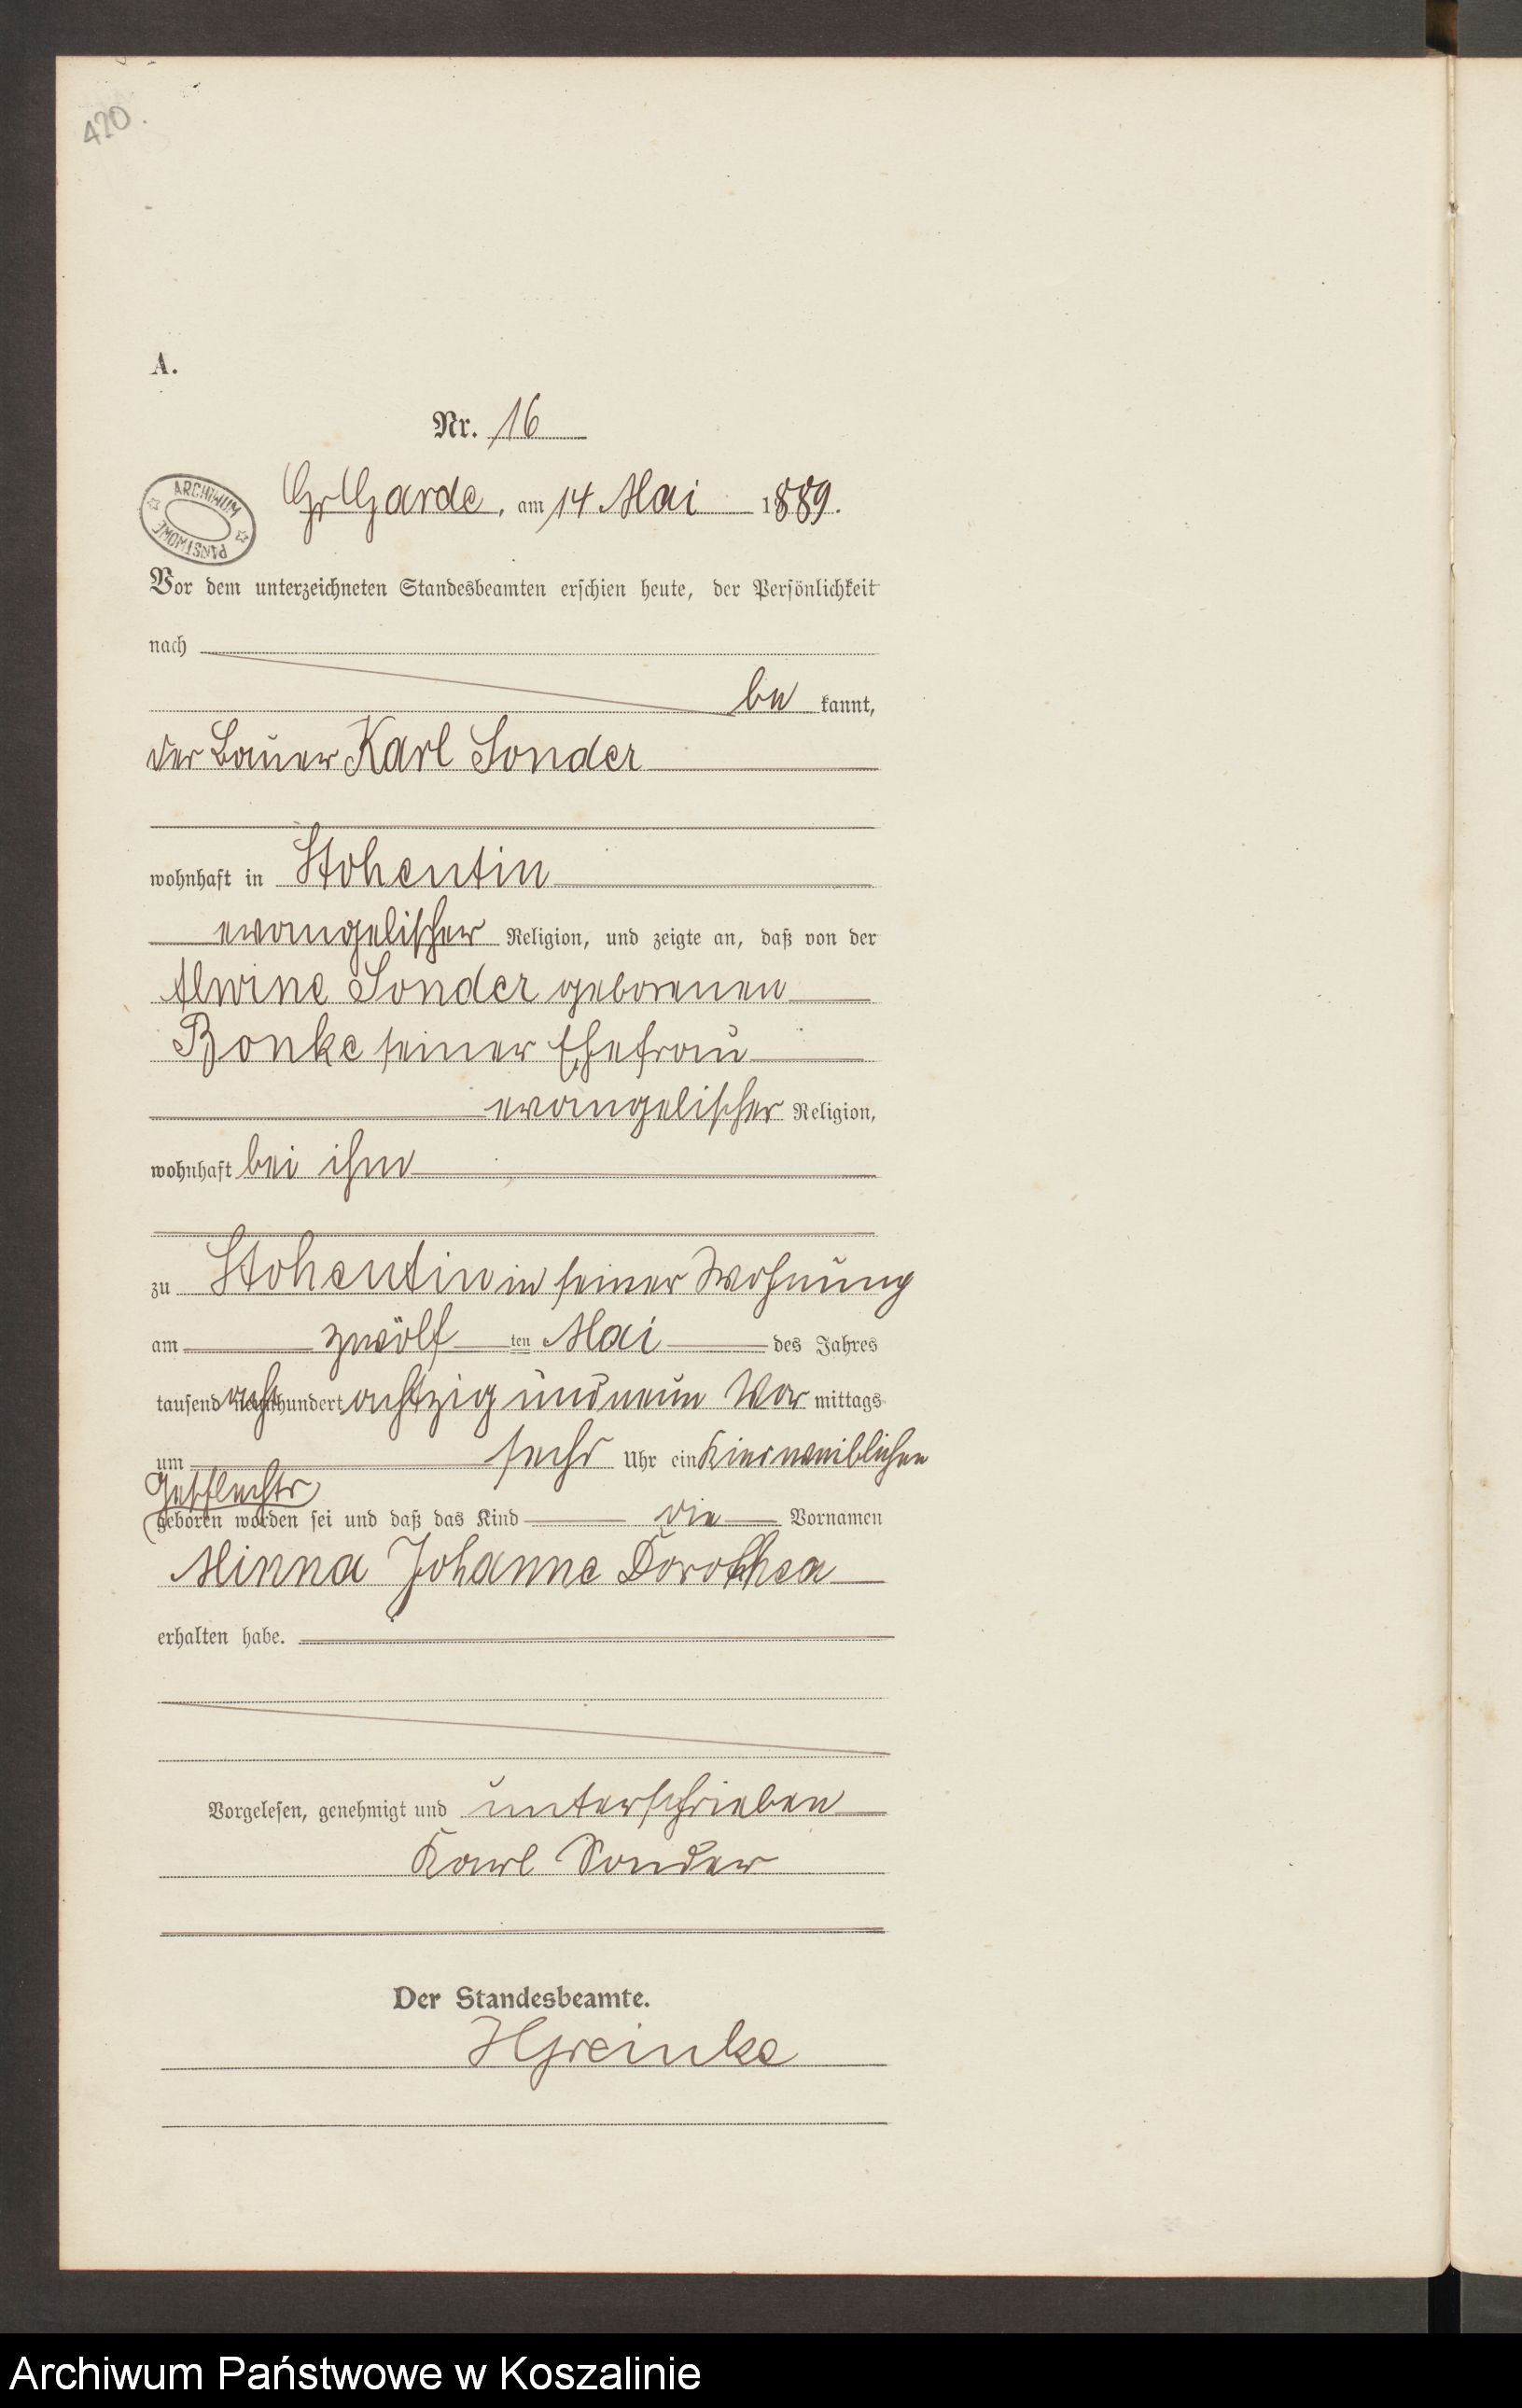 420.
A.
Nr. 16
ARCHIWUM PAŃSTWOWE
Gr Garde, am 14 Mai 1889.
Vor dem unterzeichneten Standesbeamten erschien heute, der Persönlichkeit
nach
be kannt,
der Bauer Karl Sonder
wohnhaft in Stohentin
evangelischer Religion, und zeigte an, daß von der
Alwine Sonder geborenen
Bonke seiner Ehefrau
evangelischer Religion,
wohnhaft bei ihm
zu Stohentin in seiner Wohnung
am zwölf ten Mai des Jahres
tausend acht hundert achtzig und neun Vor mittags
um sechs Uhr ein Kind weiblichen
Geschlechts
geboren worden sei und daß das Kind die Vornamen
Minna Johanne Dorothea
erhalten habe.
Vorgelesen, genehmigt und unterschrieben
Karl Sonder
Der Standesbeamte.
HGreinke
Archiwum Państwowe w Koszalinie